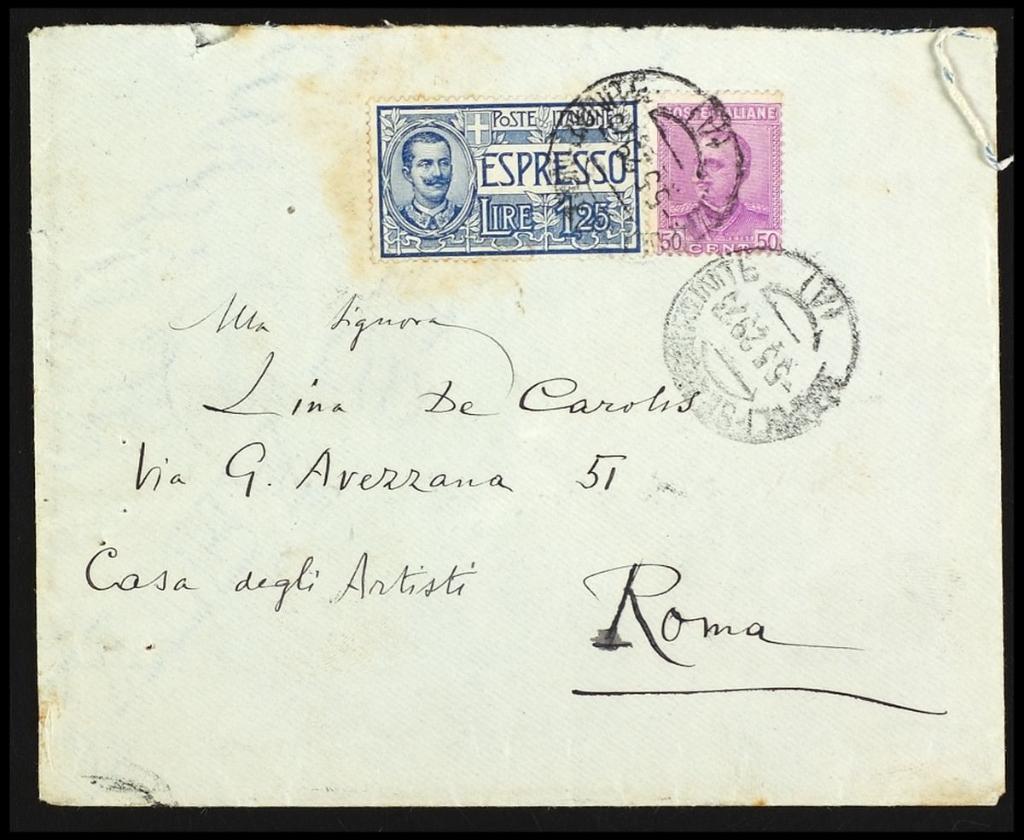 POSTE ITALIANE
ESPRESSO
LIRE 1.25
POSTE ITALIANE
50 CENT 50
Alla Signora
Lina De Carolis
Via G. Avezzana 51
Casa degli Artisti
Roma